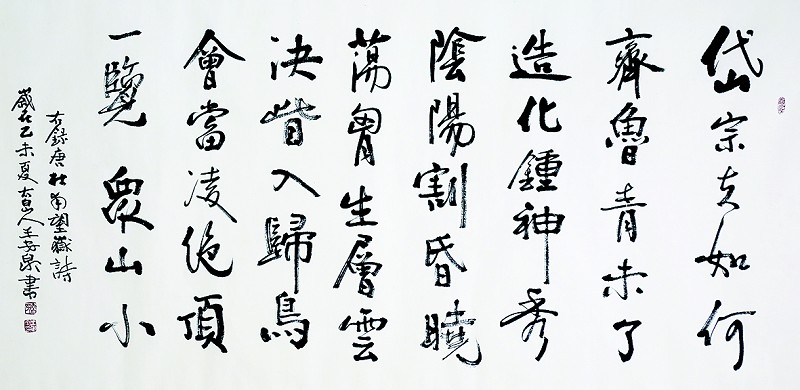 岱宗夫如何
齊魯青未了
造化鍾神秀
陰陽割昏曉
蕩胷生層雲
決眥入歸鳥
會當凌絕頂
一覽眾山小
右錄唐杜甫望嶽詩
歲在乙未夏人王書